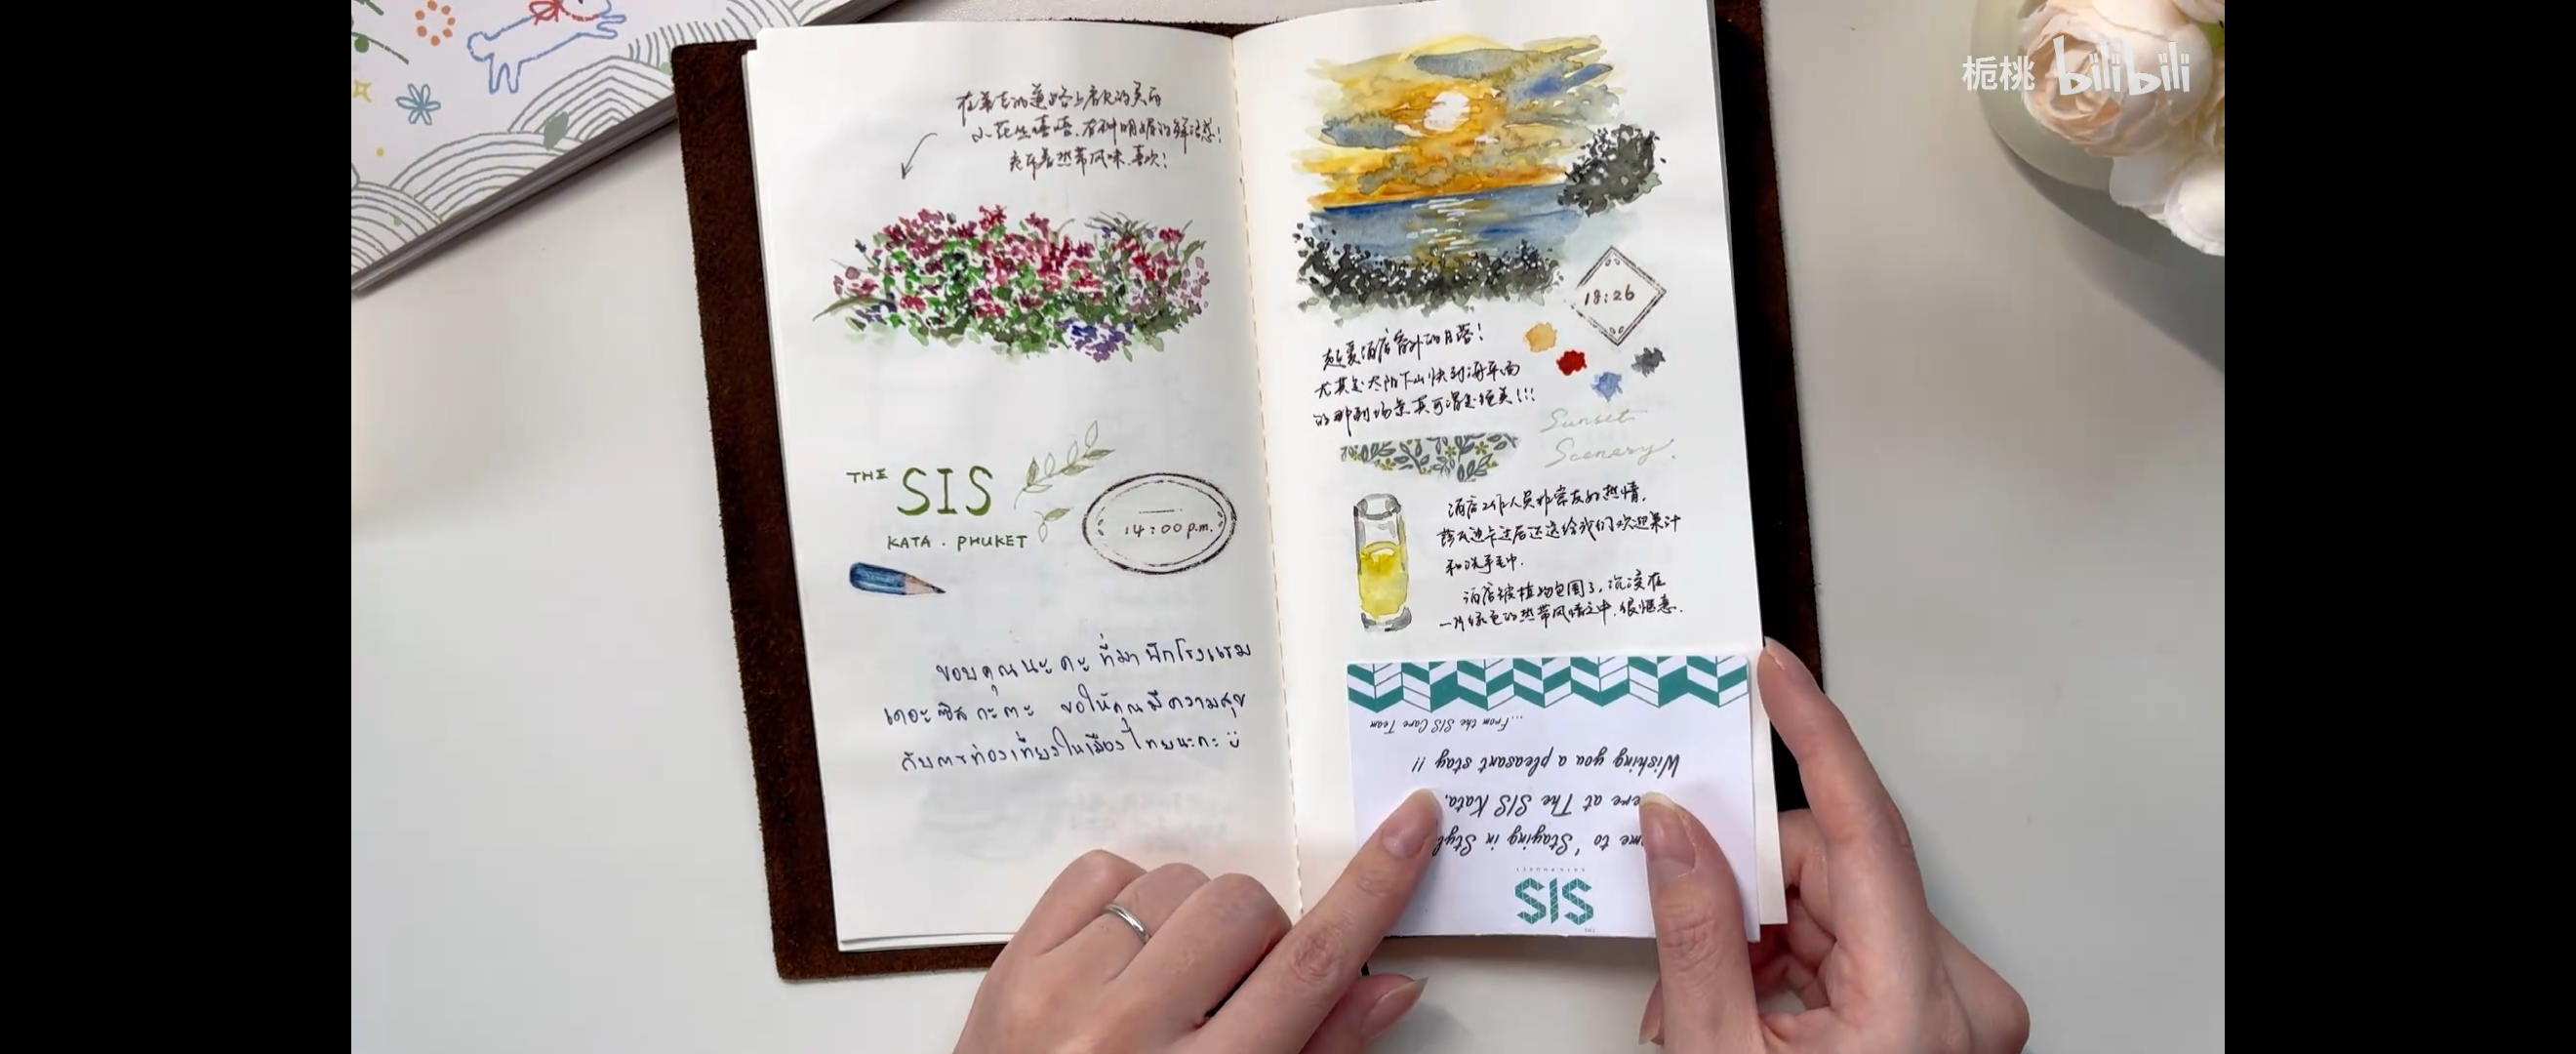 栀桃 bilibili
在第七的道路上看见的美丽
小花丛嘻嘻,有种明媚的鲜活感!
充斥着热带风味,喜欢!
THE SIS
KATA . PHUKET
14:00 p.m.
ขอบคุณนะคะ ที่มาพักโรงแรม
เดอะซิส กะตะ ขอให้คุณมีความสุข
กับการท่องเที่ยวในเมืองไทยนะคะ
18:26
酒店窗外的日落!
尤其是太阳下山快到海平面
的那刻场景真可谓是绝美!!!
Sunset
Scenery.
酒店工作人员非常友好热情,
过后还送给我们欢迎果汁
和洗手毛巾.
酒店被植物包围了,沉浸在
一片绿色的热带风情之中.很惬意.
SIS
to 'Staying in
at The SIS Kata,
Wishing you a pleasant stay !!
...From the SIS Care Team